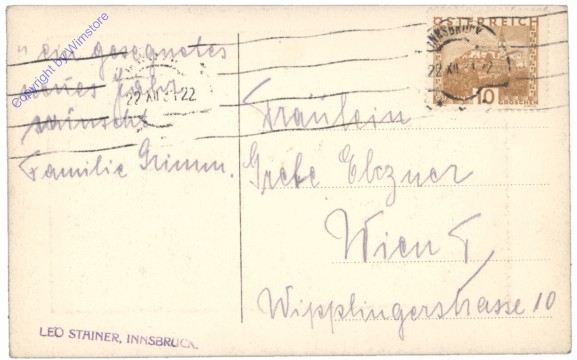 " ein gesegnetes
neues Jahr
wünscht
Familie Grimm.
copyright by Wimstore
29 XII 31 22
ÖSTERREICH
INNSBRUCK
29 XII 31 22
10
GROSCHEN
Fräulein
Grete Elzner
Wien I,
Wipplingerstrasse 10
LEO STAINER, INNSBRUCK.